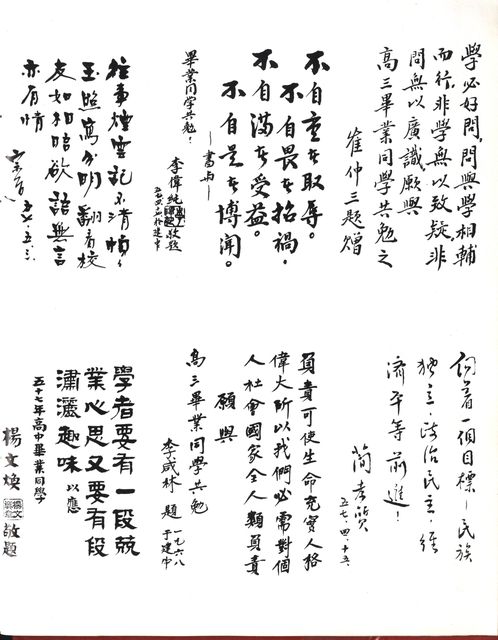 學必好問,問與學相輔
而行,非學無以致疑,非
問無以廣識願與
高三畢業同學共勉之
崔仲三題贈
不自重者取辱。
不自畏者招禍,
不自滿者受益。
不自是者博聞。
畢業同学共勉!
李偉純
敬題
往事煙雲記不清
玉照寫分明翻看校
友如相晤欲語無言
亦有情
五七·五·三·
向着一個目標—民族
独立,政治民主,經
濟平等前進!
簡孝質
五七·四·十五·
負責可使生命充實人格
偉大所以我們必需對個
人社會國家全人類負責
願與
高三畢業同學共勉
李咸林 題
一九六八
于建中
學者要有一段兢
業心思又要有段
瀟灑趣味 以應
五十七年高中畢業同學
楊文煥 敬題